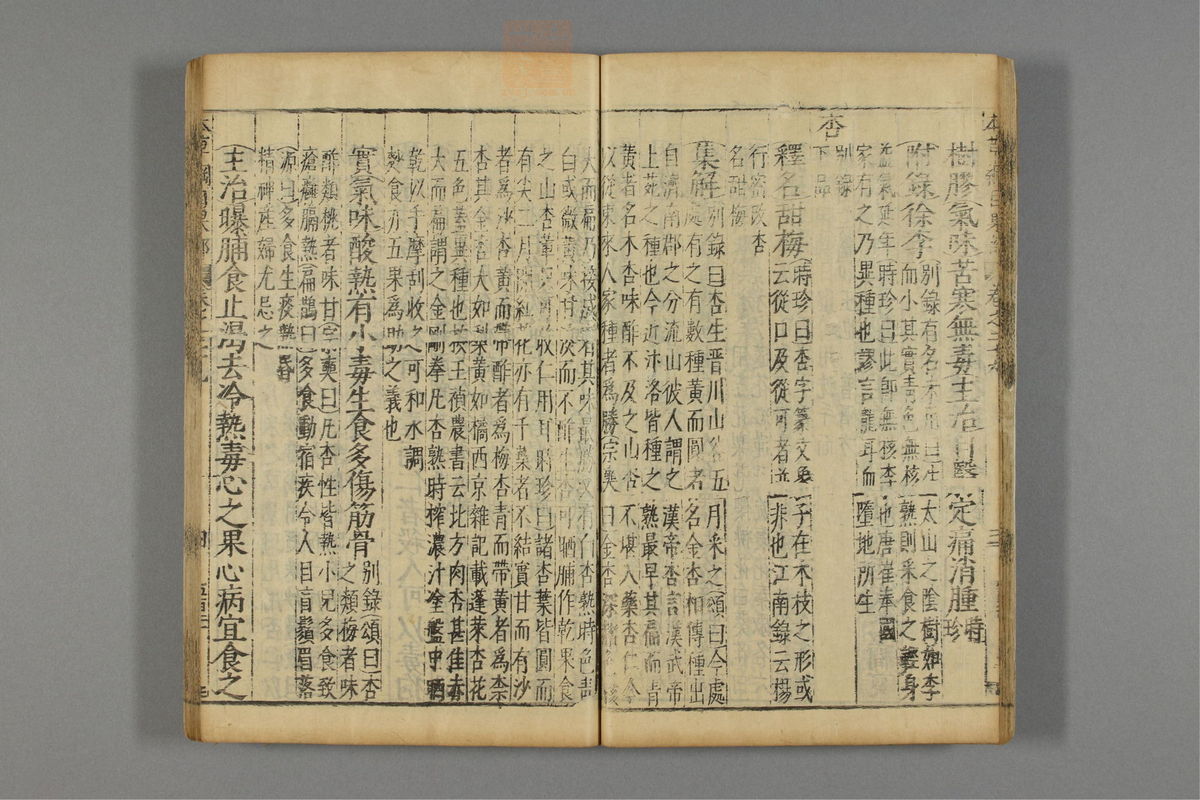 樹膠氣味苦寒無毒主治目瞖定痛消腫時珍
附錄徐李別錄有名未用曰生太山之陰樹如李
而小其實青色無核熟則采食之輕身
益氣延年時珍曰此即無核李也唐崔奉國
家有之乃異種也謬言龍耳血墮地所生
別錄
下品
杏
釋名甜梅時珍曰杏字篆文象子在木枝之形或
云從口及從可者並非也江南錄云楊
行密改杏
名甜梅
集解別錄曰杏生晉川山谷五月采之頌曰今處
處有之有數種黃而圓者名金杏相傳種出
自濟南郡之分流山彼人謂之漢帝杏言漢武帝
上苑之種也今近汴洛皆種之熟最早其扁而青
黃者名木杏味酢不及之山杏不堪入藥杏仁今
以從東來人家種者為勝宗奭曰金杏深赭色核
大而扁乃接成者其味最勝又有白杏熟時色青
白或微黃味甘淡而不酢生杏可晒脯作乾果食
之山杏輩只可收仁用耳時珍曰諸杏葉皆圓而
有尖二月開紅花亦有千葉者不結實甘而有沙
者為沙杏黃而帶酢者為梅杏青而帶黃者為柰
杏其金杏大如梨黃如橘西京雜記載蓬萊杏花
五色蓋異種也按王禎農書云北方肉杏甚佳赤
大而扁謂之金剛拳凡杏熟時搾濃汁塗盤中晒
乾以手摩刮收之可和水調
麨食乃五果為助之義也
實氣味酸熱有小毒生食多傷筋骨別錄頌曰杏
之類梅者味
酢類桃者味甘宗奭曰凡杏性皆熱小兒多食致
瘡癰膈熱扁鵲曰多食動宿疾令人目盲鬚眉落
源曰多食生痰熱昏
精神產婦尤忌之
主治曝脯食止渴去冷熱毒心之果心病宜食之